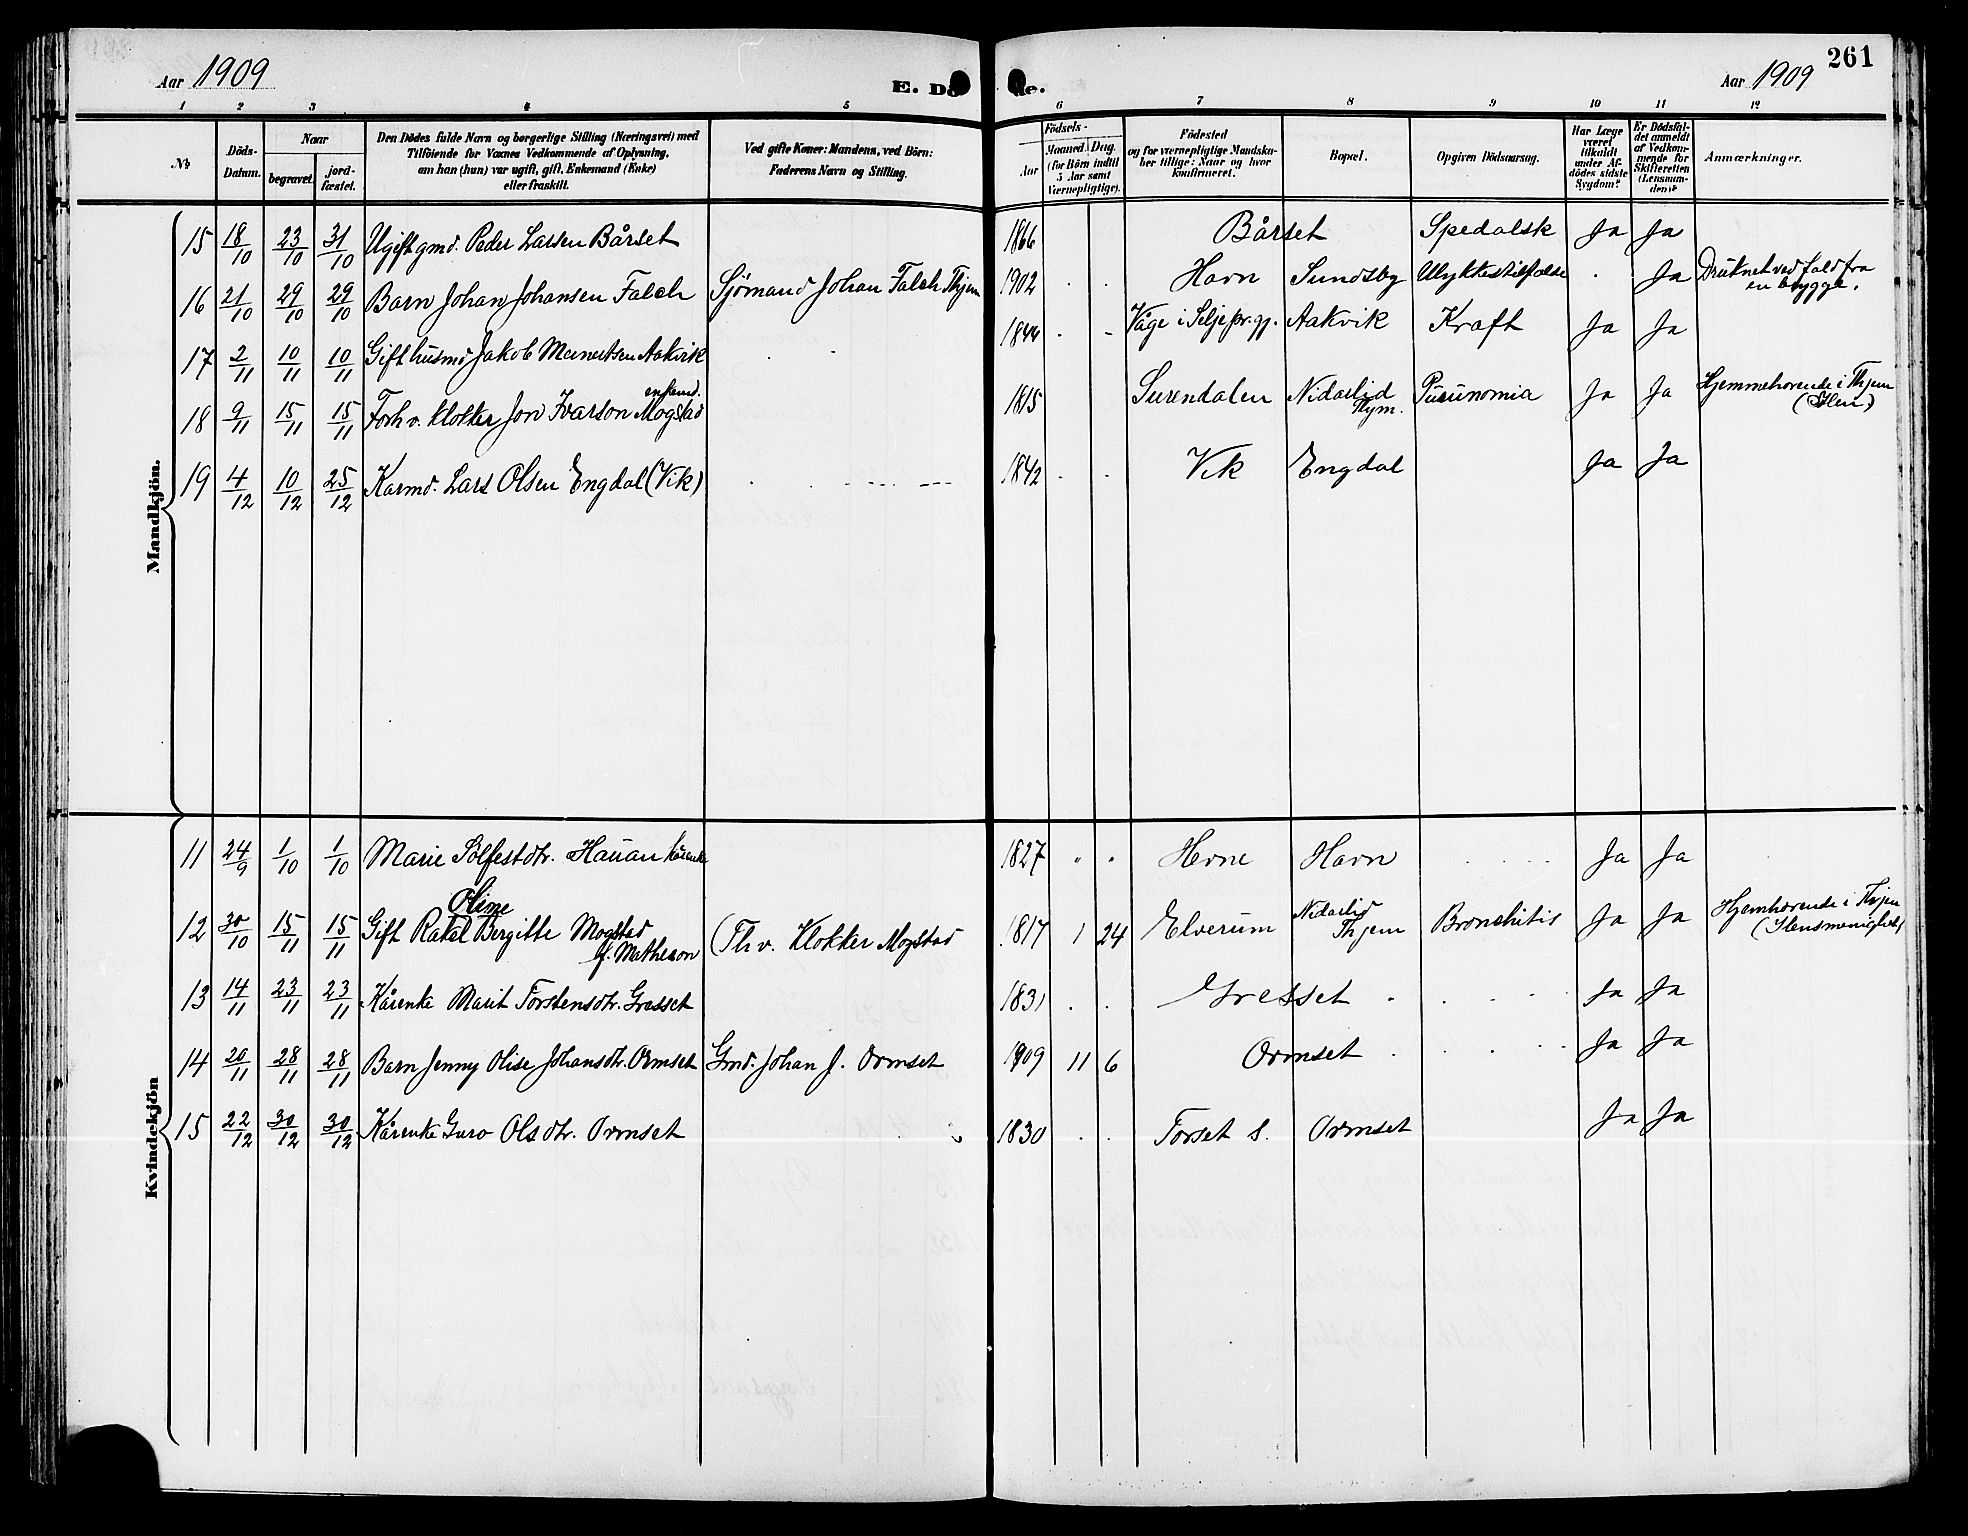 Aar 1909
E. Dö de.
Aar 1909
261
1 2 3 4 5 6 7 8 9 10 11 12
No
Döds-Datum.
Naar
begravet.
jord-fæstet.
Den Dödes fulde Navn og borgerlige Stilling (Næringsvei) med
Tilföiende for Voxnes Vedkommende af Oplysning,
om han (hun) var ugift, gift, Enkemand (Enke)
eller fraskilt.
Ved gifte Koner: Mandens, ved Börn:
Faderens Navn og Stilling.
Födsels-
Aar
Maaned. Dag.
(for Börn indtil
5 Aar samt
Værnepligtige).
Födested
og for værnepligtige Mandska-
ber tillige: Naar og hvor
konfirmeret.
Bopæl.
Opgiven Dödsaarsag.
Har Læge
været
tilkaldt
under Af-
dödes sidste
Sygdom?
Er Dödsfal-
det anmeldt
af Vedkom-
mende for
Skifteretten
(Lensman-
den)?
Anmærkninger.
Mandkjön.
15 18/10 23/10 31/10 Ugift gmd. Peder Larsen Bårset 1866 Bårset Spedalsk Ja Ja
16 21/10 29/10 29/10 Barn Johan Johansen Falch Sjømand Johan Falch Thjem 1902 Havn Sundsby Ulykkestilfælde Ja Druknet ved fald fra
en brygge.
17 2/11 10/11 10/11 Gift husmd Jakob Aakvik 1844 Våge i Selje pr.gj. Aakvik Kræft Ja Ja
18 9/11 15/11 15/11 Forh v. klokker Jon Ivarson Mogstad enkemd. 1815 Surendalen Nidarlid
Thjem. Ja Ja Hjemmehørende i Thjem
(Ilen)
19 4/12 10/12 25/12 Kårmd. Lars Olsen Engdal (Vik) 1842 Vik Engdal Ja Ja
Kvindekjön
11 24/9 1/10 1/10 Marie Solfestdtr. Hauan kårenke 1827 " " Hevne Havn Ja Ja
Oline
12 30/10 15/11 15/11 Gift Rakel Bergitte Mogstad
f. Matheson (Th v. Klokker Mogstad 1817 1 24 Elverum Nidarlid
Thjem Bronchitis Ja Ja Hjemhørende i Thjem
(Ilens menighed)
13 14/11 23/11 23/11 Kårenke Marit Torstensdtr. Gresset 1831 Gresset Ja Ja
14 20/11 28/11 28/11 Barn Jenny Olise Johansdtr. Ormset Gmd. Johan J. Ormset 1909 11 6 Ormset Ja Ja
15 22/12 30/12 30/12 Kårenke Guro Olsdtr. Ormset 1830 Torset s. Ormset Ja Ja